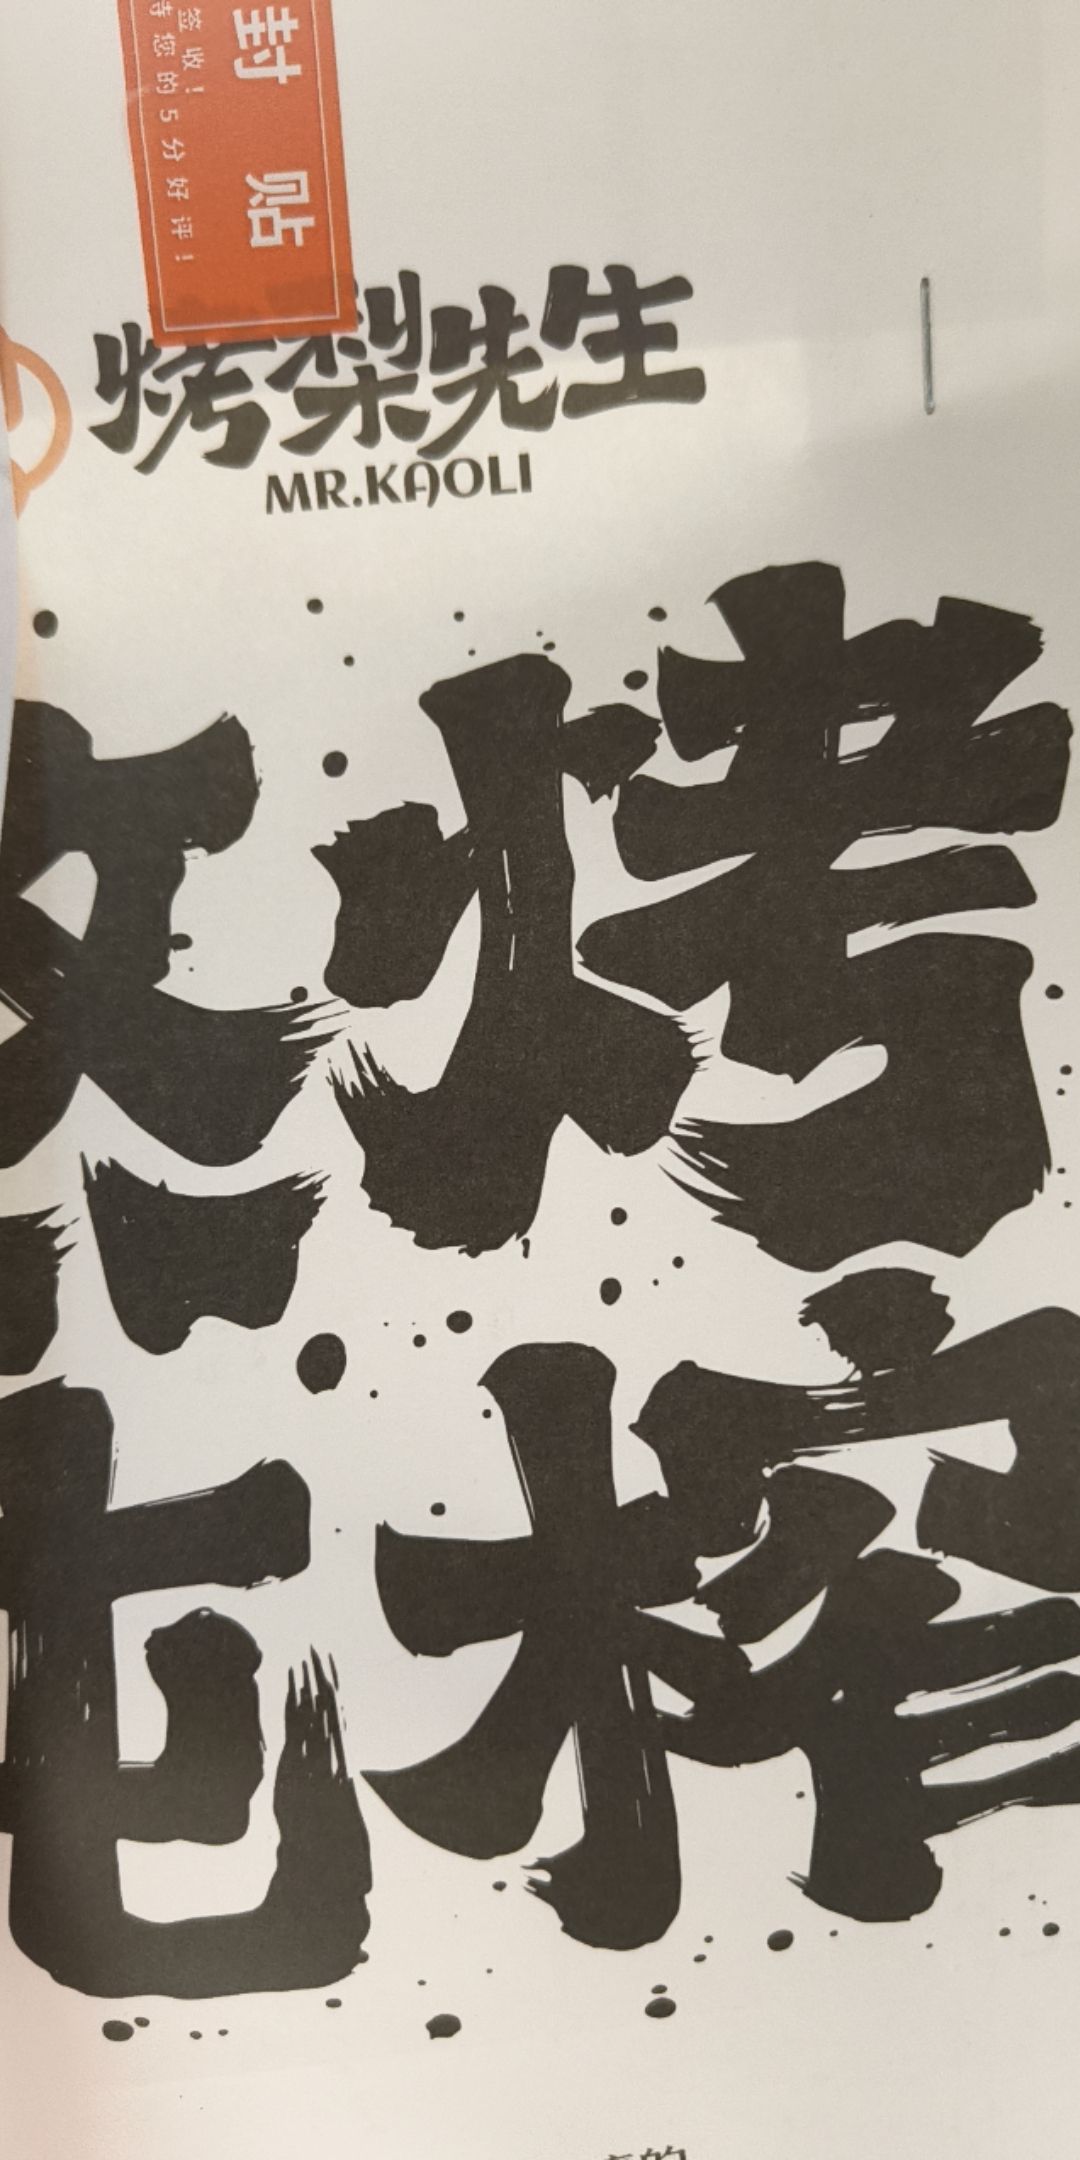 封 贴
签收！
待您的5分好评！
烤梨先生
MR.KAOLI
烤
榨
的